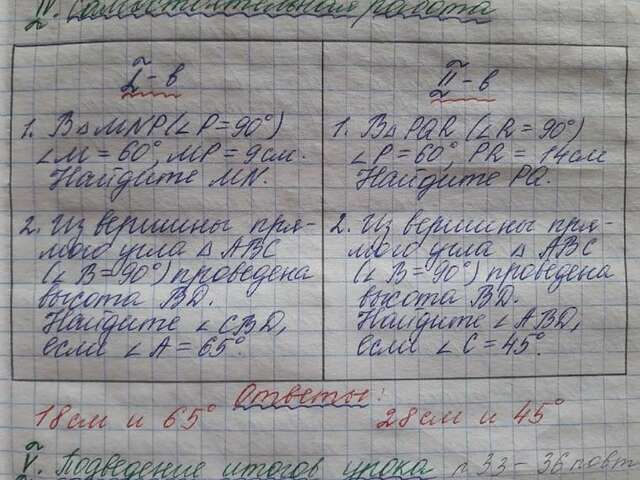 IV. Самостоятельная работа
I - в
1. В △ MNP (∠P = 90°)
∠M = 60°, MP = 9см.
Найдите MN.
2. Из вершины пря-
мого угла △ ABC
(∠ B = 90°) проведена
высота BD.
Найдите ∠ CBD,
если ∠ A = 65°.
II - в
1. В △ PQR (∠R = 90°)
∠P = 60°, PR = 14см
Найдите PQ.
2. Из вершины пря-
мого угла △ ABC
(∠ B = 90°) проведена
высота BD.
Найдите ∠ ABD,
если ∠ C = 45°.
Ответы:
18см и 65°
28см и 45°
V. Подведение итогов урока п 33 - 36 повт